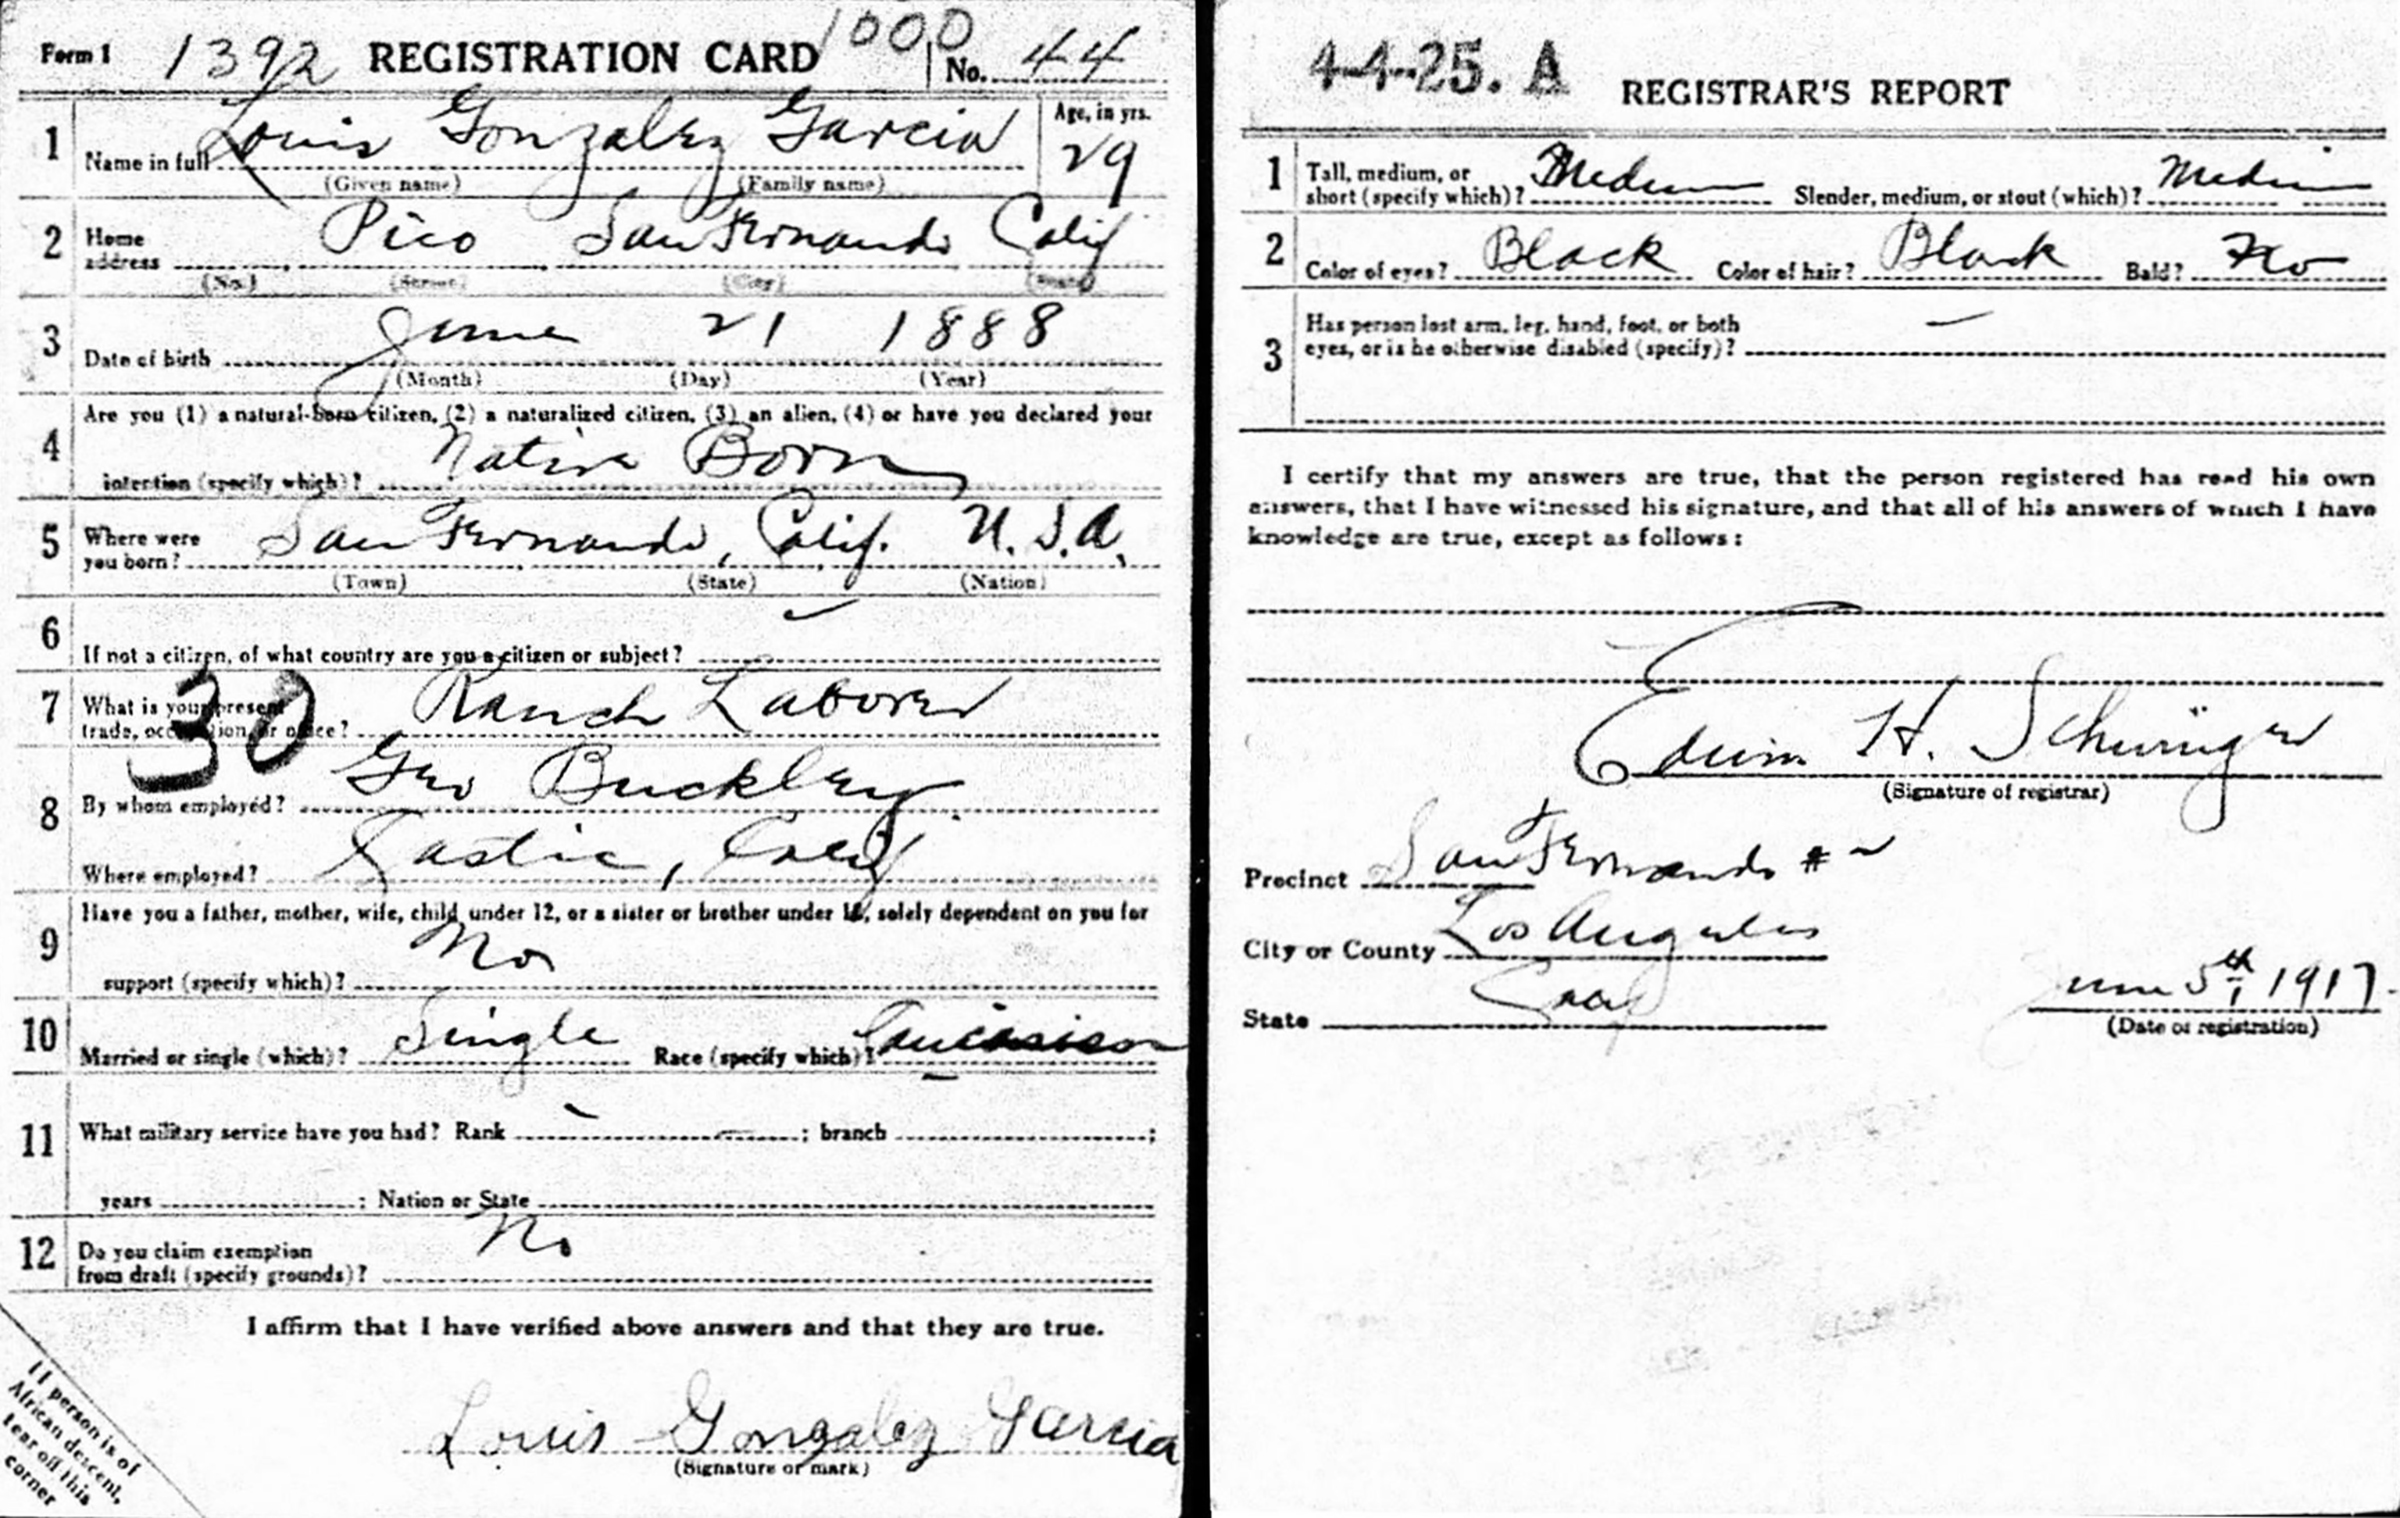 Form 1 1392 REGISTRATION CARD 1000 No. 44
1 Name in full Louis Gonzalez Garcia Age, in yrs. 29
(Given name) (Family name)
2 Home address Pico San Fernando Calif
(No.) (Street) (City) (State)
3 Date of birth June 21 1888
(Month) (Day) (Year)
4 Are you (1) a natural-born citizen, (2) a naturalized citizen, (3) an alien, (4) or have you declared your
intention (specify which)? Native Born
5 Where were you born? San Fernando, Calif. U.S.A.
(Town) (State) (Nation)
6 If not a citizen, of what country are you a citizen or subject?
7 What is your present trade, occupation, or office? Ranch Laborer
30
8 By whom employed? Geo Buckley
Where employed? Castic, Calif
9 Have you a father, mother, wife, child under 12, or a sister or brother under 12, solely dependent on you for
support (specify which)? No
10 Married or single (which)? Single Race (specify which)? Caucasian
11 What military service have you had? Rank ; branch ;
years ; Nation or State
12 Do you claim exemption from draft (specify grounds)? No
I affirm that I have verified above answers and that they are true.
Louis Gonzalez Garcia
(Signature or mark)
If person is of
African descent,
tear off this
corner
4-4-25. A REGISTRAR'S REPORT
1 Tall, medium, or short (specify which)? Medium Slender, medium, or stout (which)? Medium
2 Color of eyes? Black Color of hair? Black Bald? No
3 Has person lost arm, leg, hand, foot, or both
eyes, or is he otherwise disabled (specify)? —
I certify that my answers are true, that the person registered has read his own
answers, that I have witnessed his signature, and that all of his answers of which I have
knowledge are true, except as follows:
Edwin H.
(Signature of registrar)
Precinct San Fernando #
City or County Los Angeles
State Calif June 5th, 1917.
(Date of registration)